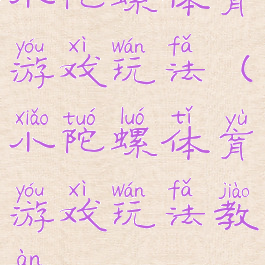 小陀螺体育
yóu xì wán fǎ
游戏玩法（
xiǎo tuó luó tǐ yù
小陀螺体育
yóu xì wán fǎ jiào
游戏玩法教
àn